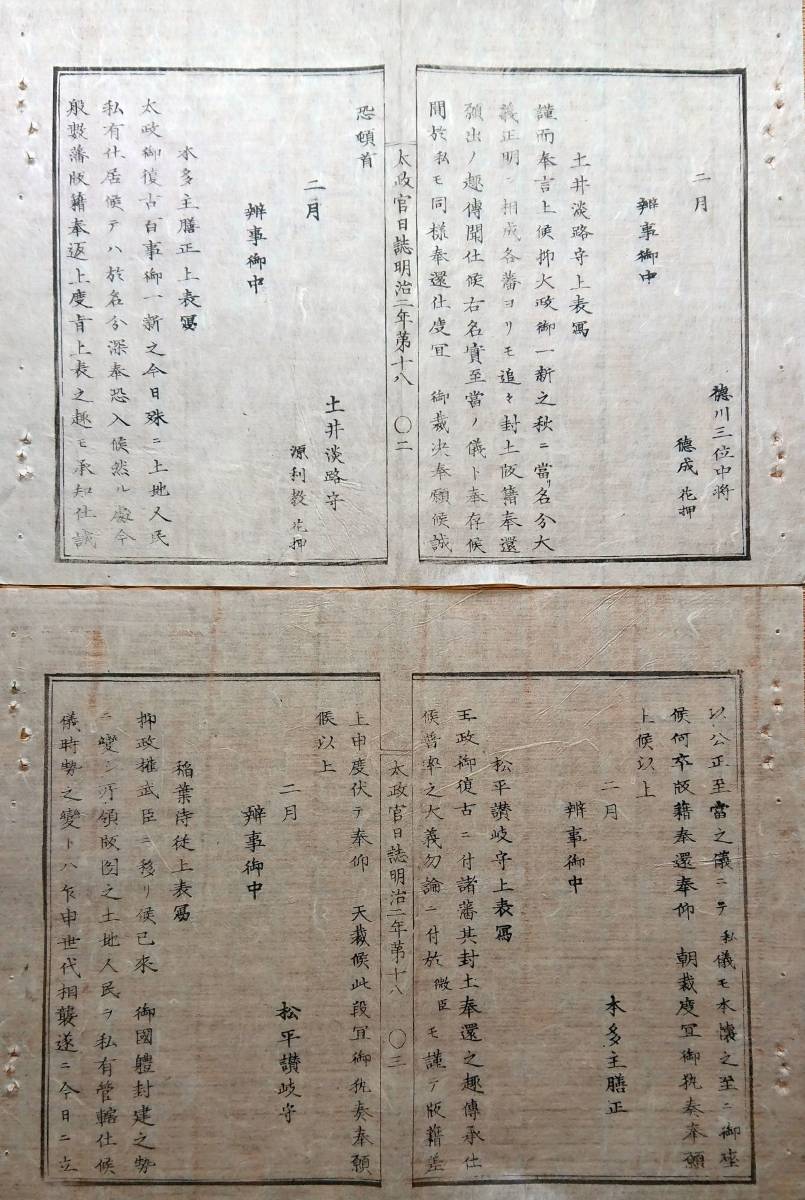 徳川三位中将
徳成 花押
二月
辨事御中
土井淡路守上表寫
謹而奉言上候抑大政御一新之秋ニ當リ名分大
義正明ニ相成各藩ヨリモ追々封土版籍奉還
願出ノ趣傳聞仕候右名實至當ノ儀ト奉存候
間於私モ同様奉還仕度冝 御裁決奉願候誠
太政官日誌明治二年第十八 〇二
恐頓首
二月
土井淡路守
源利教 花押
辨事御中
本多主膳正上表寫
太政御復古百事御一新之今日殊ニ土地人民
私有仕居候テハ於名分深奉恐入候然ル處今
般數藩版籍奉返上度旨上表之趣モ承知仕誠
以公正至當之儀ニテ私儀モ本懐之至ニ御座
候何卒版籍奉還奉仰 朝裁度冝御執奏奉願
上候以上
二月
本多主膳正
辨事御中
松平讃岐守上表寫
王政御復古ニ付諸藩其封土奉還之趣傳承仕
候普率之大義勿論ニ付於微臣モ謹テ版籍差
太政官日誌明治二年第十八 〇三
上申度伏テ奉仰 天裁候此段冝御執奏奉願
候以上
二月
松平讃岐守
辨事御中
稲葉侍従上表寫
抑政權武臣ニ移リ候已來 御國體封建之勢
ニ變シ所領版圖之土地人民ヲ私有管轄仕候
儀時勢之變トハ乍申世代相襲遂ニ今日ニ立